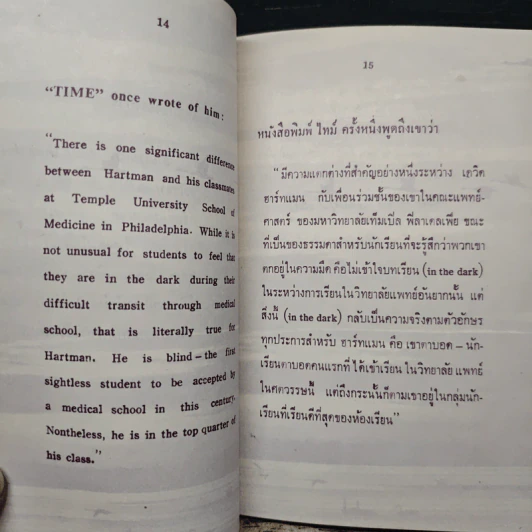 14
"TIME" once wrote of him:
"There is one significant difference
between Hartman and his classmates
at Temple University School of
Medicine in Philadelphia. While it is
not unusual for students to feel that
they are in the dark during their
difficult transit through medical
school, that is literally true for
Hartman. He is blind – the first
sightless student to be accepted by
a medical school in this century.
Nontheless, he is in the top quarter of
his class."
15
หนังสือพิมพ์ ไทม์ ครั้งหนึ่งพูดถึงเขาว่า
"มีความแตกต่างที่สำคัญอย่างหนึ่งระหว่าง เดวิด
ฮาร์ทแมน กับเพื่อนร่วมชั้นของเขาในคณะแพทย์-
ศาสตร์ ของมหาวิทยาลัยเท็มเปิล ฟิลาเดลเฟีย ขณะ
ที่เป็นของธรรมดาสำหรับนักเรียนที่จะรู้สึกว่าพวกเขา
ตกอยู่ในความมืด คือไม่เข้าใจบทเรียน (in the dark)
ในระหว่างการเรียนในวิทยาลัยแพทย์อันยากนั้น แต่
สิ่งนี้ (in the dark) กลับเป็นความจริงตามตัวอักษร
ทุกประการสำหรับ ฮาร์ทแมน คือ เขาตาบอด – นัก-
เรียนตาบอดคนแรกที่ ได้เข้าเรียน ในวิทยาลัย แพทย์
ในศตวรรษนี้ แต่ถึงกระนั้นก็ตามเขาอยู่ในกลุ่มนัก-
เรียนที่เรียนดีที่สุดของห้องเรียน"